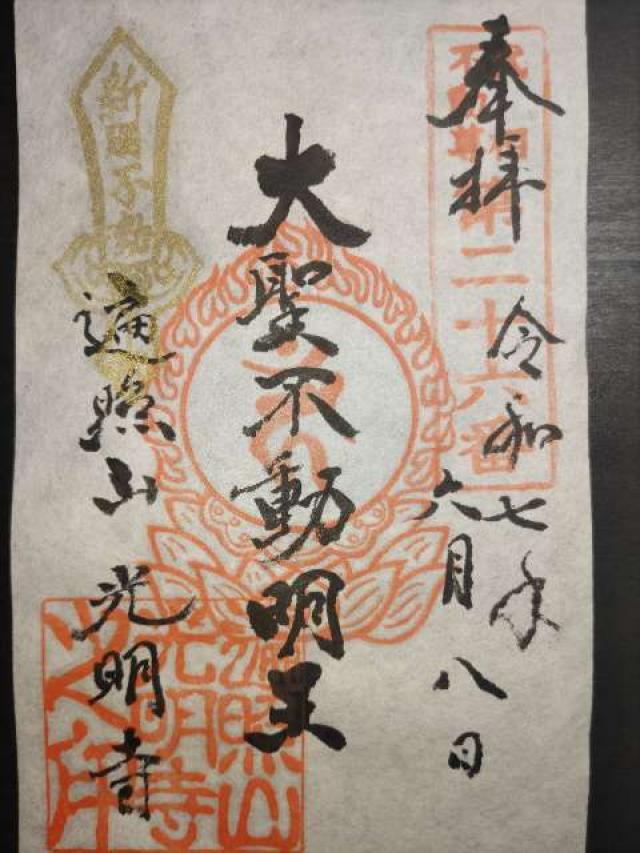 奉拝
第二十六番
令和七年
六月八日
大聖不動明王
新四国不動
遍照山 光明寺
遍照山
光明寺
之印